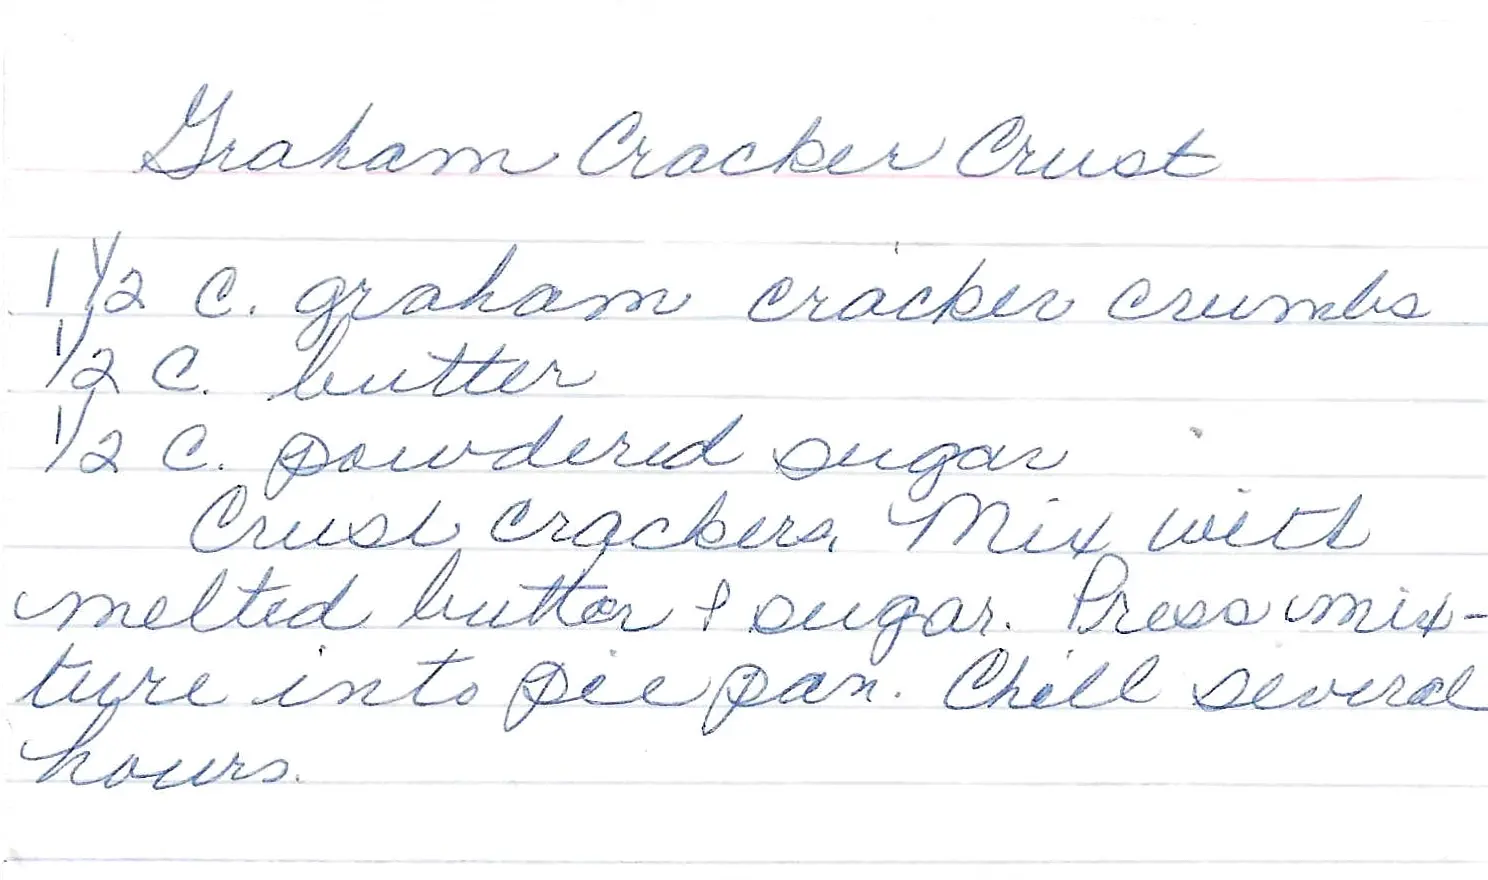 Graham Cracker Crust
1 1/2 c. graham cracker crumbs
1/2 c. butter
1/2 c. powdered sugar
Crush crackers. Mix with
melted butter & sugar. Press mix-
ture into pie pan. Chill several
hours.